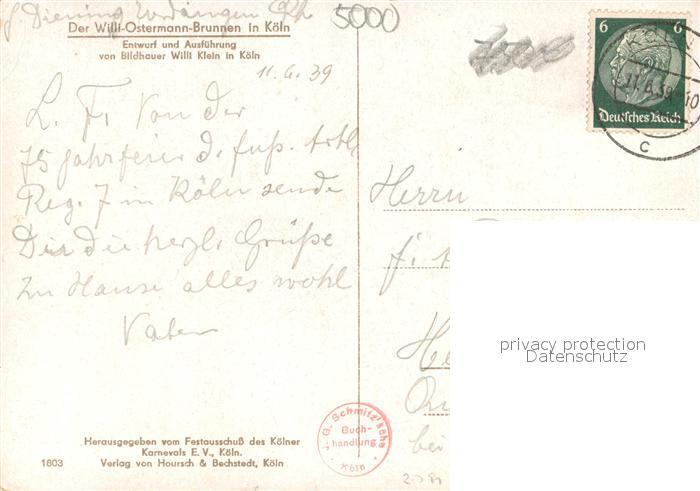 5000
Der Willi-Ostermann-Brunnen in Köln
Entwurf und Ausführung
von Bildhauer Willi Klein in Köln
11.6.39
L. F. Von der
75 jahrfeier d. fuß. Artl.
Reg. 7 in Köln sende
Dir die herzl. Grüße
zu Hause alles wohl
Vater
Herausgegeben vom Festausschuß des Kölner
Karnevals E.V., Köln.
1803 Verlag von Hoursch & Bechstedt, Köln
J. G. Schmitz'sche
Buch-
handlung
Köln
6 6
Deutsches Reich
KÖLN
11.6.39-10
c
Herrn
privacy protection
Datenschutz
bei